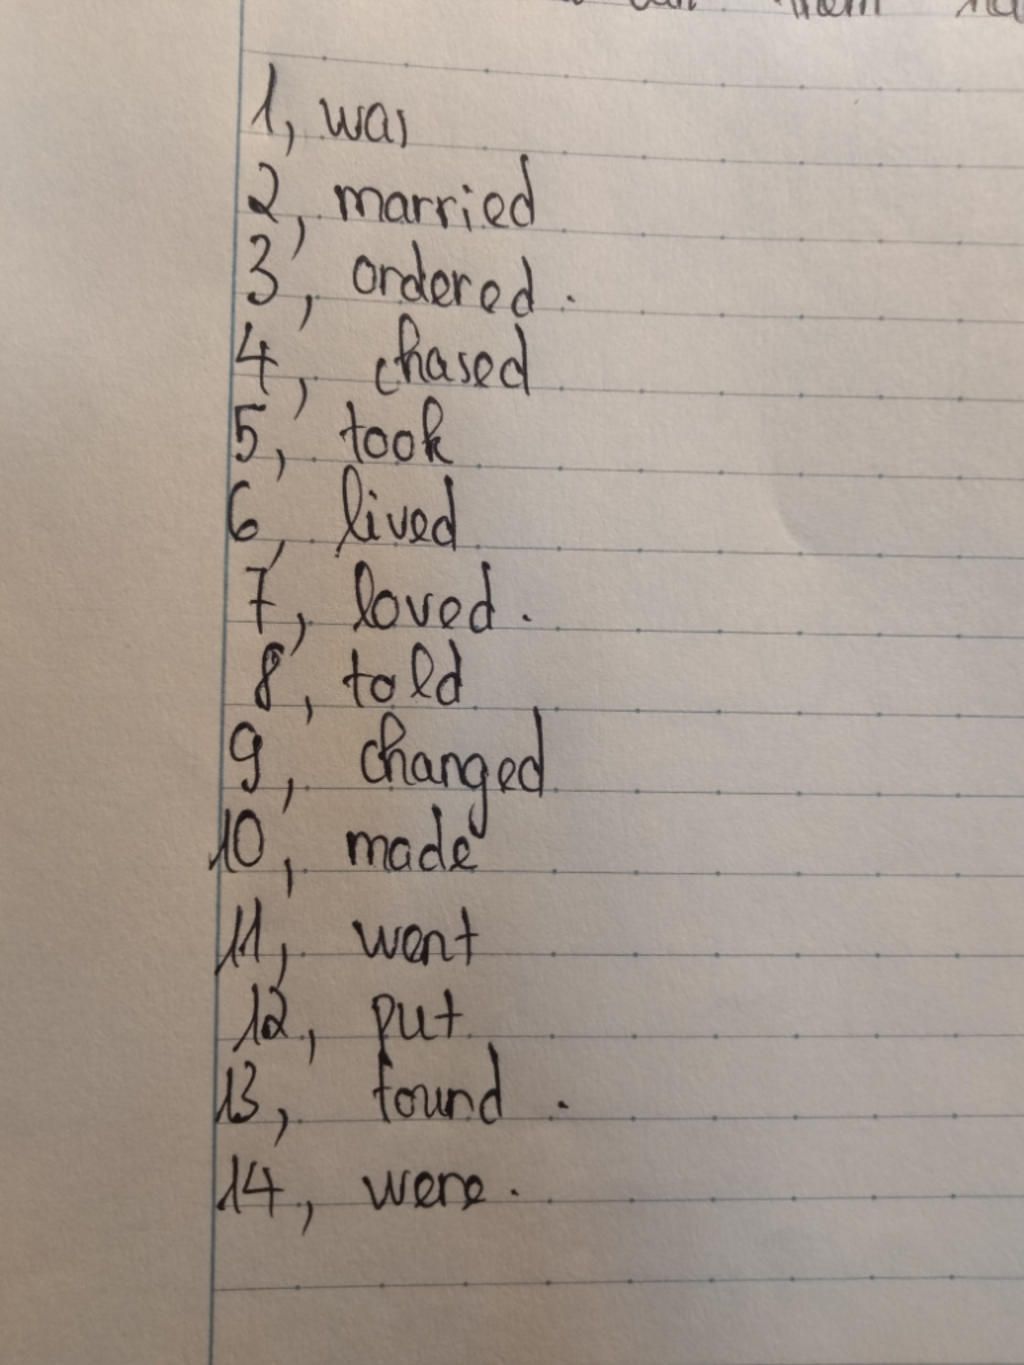 them
1, was
2, married
3, ordered.
4, chased
5, took
6, lived
7, loved.
8, told
9, changed
10, made
11, went
12, put
13, found.
14, were.